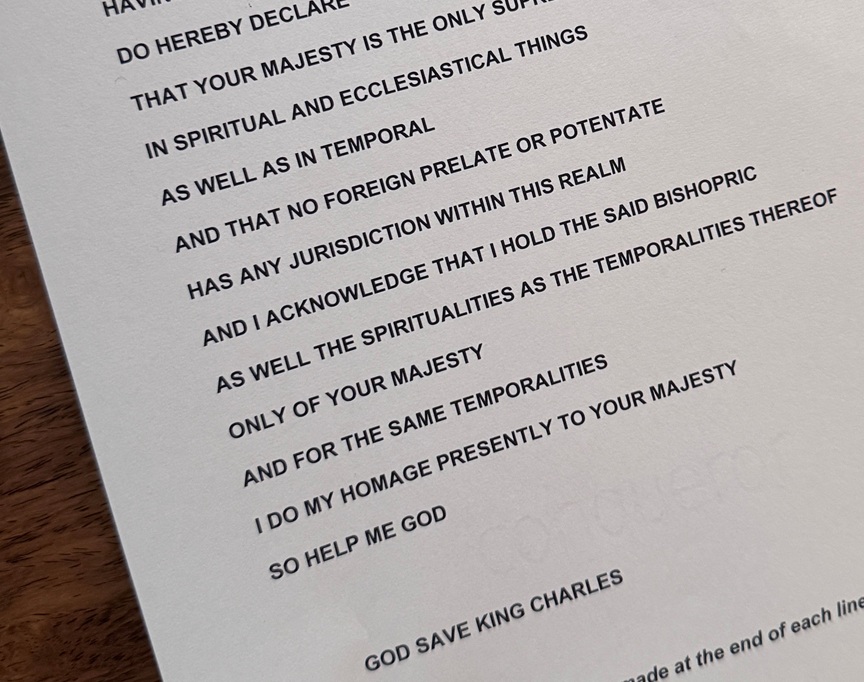 DO HEREBY DECLARE
THAT YOUR MAJESTY IS THE ONLY
IN SPIRITUAL AND ECCLESIASTICAL THINGS
AS WELL AS IN TEMPORAL
AND THAT NO FOREIGN PRELATE OR POTENTATE
HAS ANY JURISDICTION WITHIN THIS REALM
AND I ACKNOWLEDGE THAT I HOLD THE SAID BISHOPRIC
AS WELL THE SPIRITUALITIES AS THE TEMPORALITIES THEREOF
ONLY OF YOUR MAJESTY
AND FOR THE SAME TEMPORALITIES
I DO MY HOMAGE PRESENTLY TO YOUR MAJESTY
SO HELP ME GOD
conqueror
GOD SAVE KING CHARLES
at the end of each line